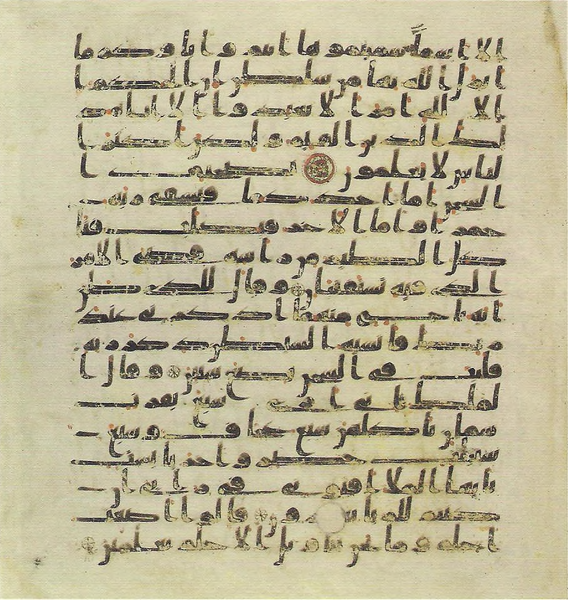 الا اسما سميتموها انتم و اباوكم ما
انزل الله بها من سلطن ان الحكم
الا لله امر الا تعبدوا الا اياه ذ
لك الدين القيم ولكن اكثر ا
لناس لا يعلمون يصحبي ا
لسجن اما احدكما فيسقي ربه
خمرا واما الاخر فيصلب فتا
كل الطير من راسه قضي الامر
الذي فيه تستفتين وقال للذي ظن
انه ناج منهما اذكرني عند
ربك فانسيه الشيطن ذكر ربه
فلبث في السجن بضع سنين وقال ا
لملك اني اري سبع بقرت
سمان ياكلهن سبع عجاف وسبع
سنبلت خضر واخر يابست
يايها الملا افتوني في ريي ان
كنتم للريا تعبرون قالوا اضغث
احلم وما نحن بتاويل الاحلم بعلمين